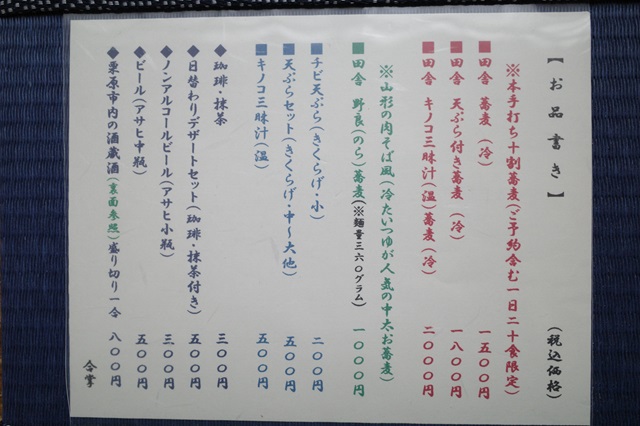 【お品書き】 (税込価格)
※本手打ち十割蕎麦(ご予約含む一日二十食限定)
■田舎 蕎麦 (冷) 一五〇〇円
■田舎 天ぷら付き蕎麦 (冷) 一八〇〇円
■田舎 キノコ三昧汁(温)蕎麦(冷) 二〇〇〇円
※山形の肉そば風(冷たいつゆが人気の中太お蕎麦)
■田舎 野良(のら)蕎麦(※麺量三六〇グラム) 一〇〇〇円
■チビ天ぷら(きくらげ・小) 二〇〇円
■天ぷらセット(きくらげ・中~大他) 五〇〇円
■キノコ三昧汁(温) 五〇〇円
◆珈琲・抹茶 三〇〇円
◆日替わりデザートセット(珈琲・抹茶付き) 五〇〇円
◆ノンアルコールビール(アサヒ小瓶) 三〇〇円
◆ビール(アサヒ中瓶) 五〇〇円
◆栗原市内の酒蔵酒(裏面参照)盛り切り一合 八〇〇円
合掌